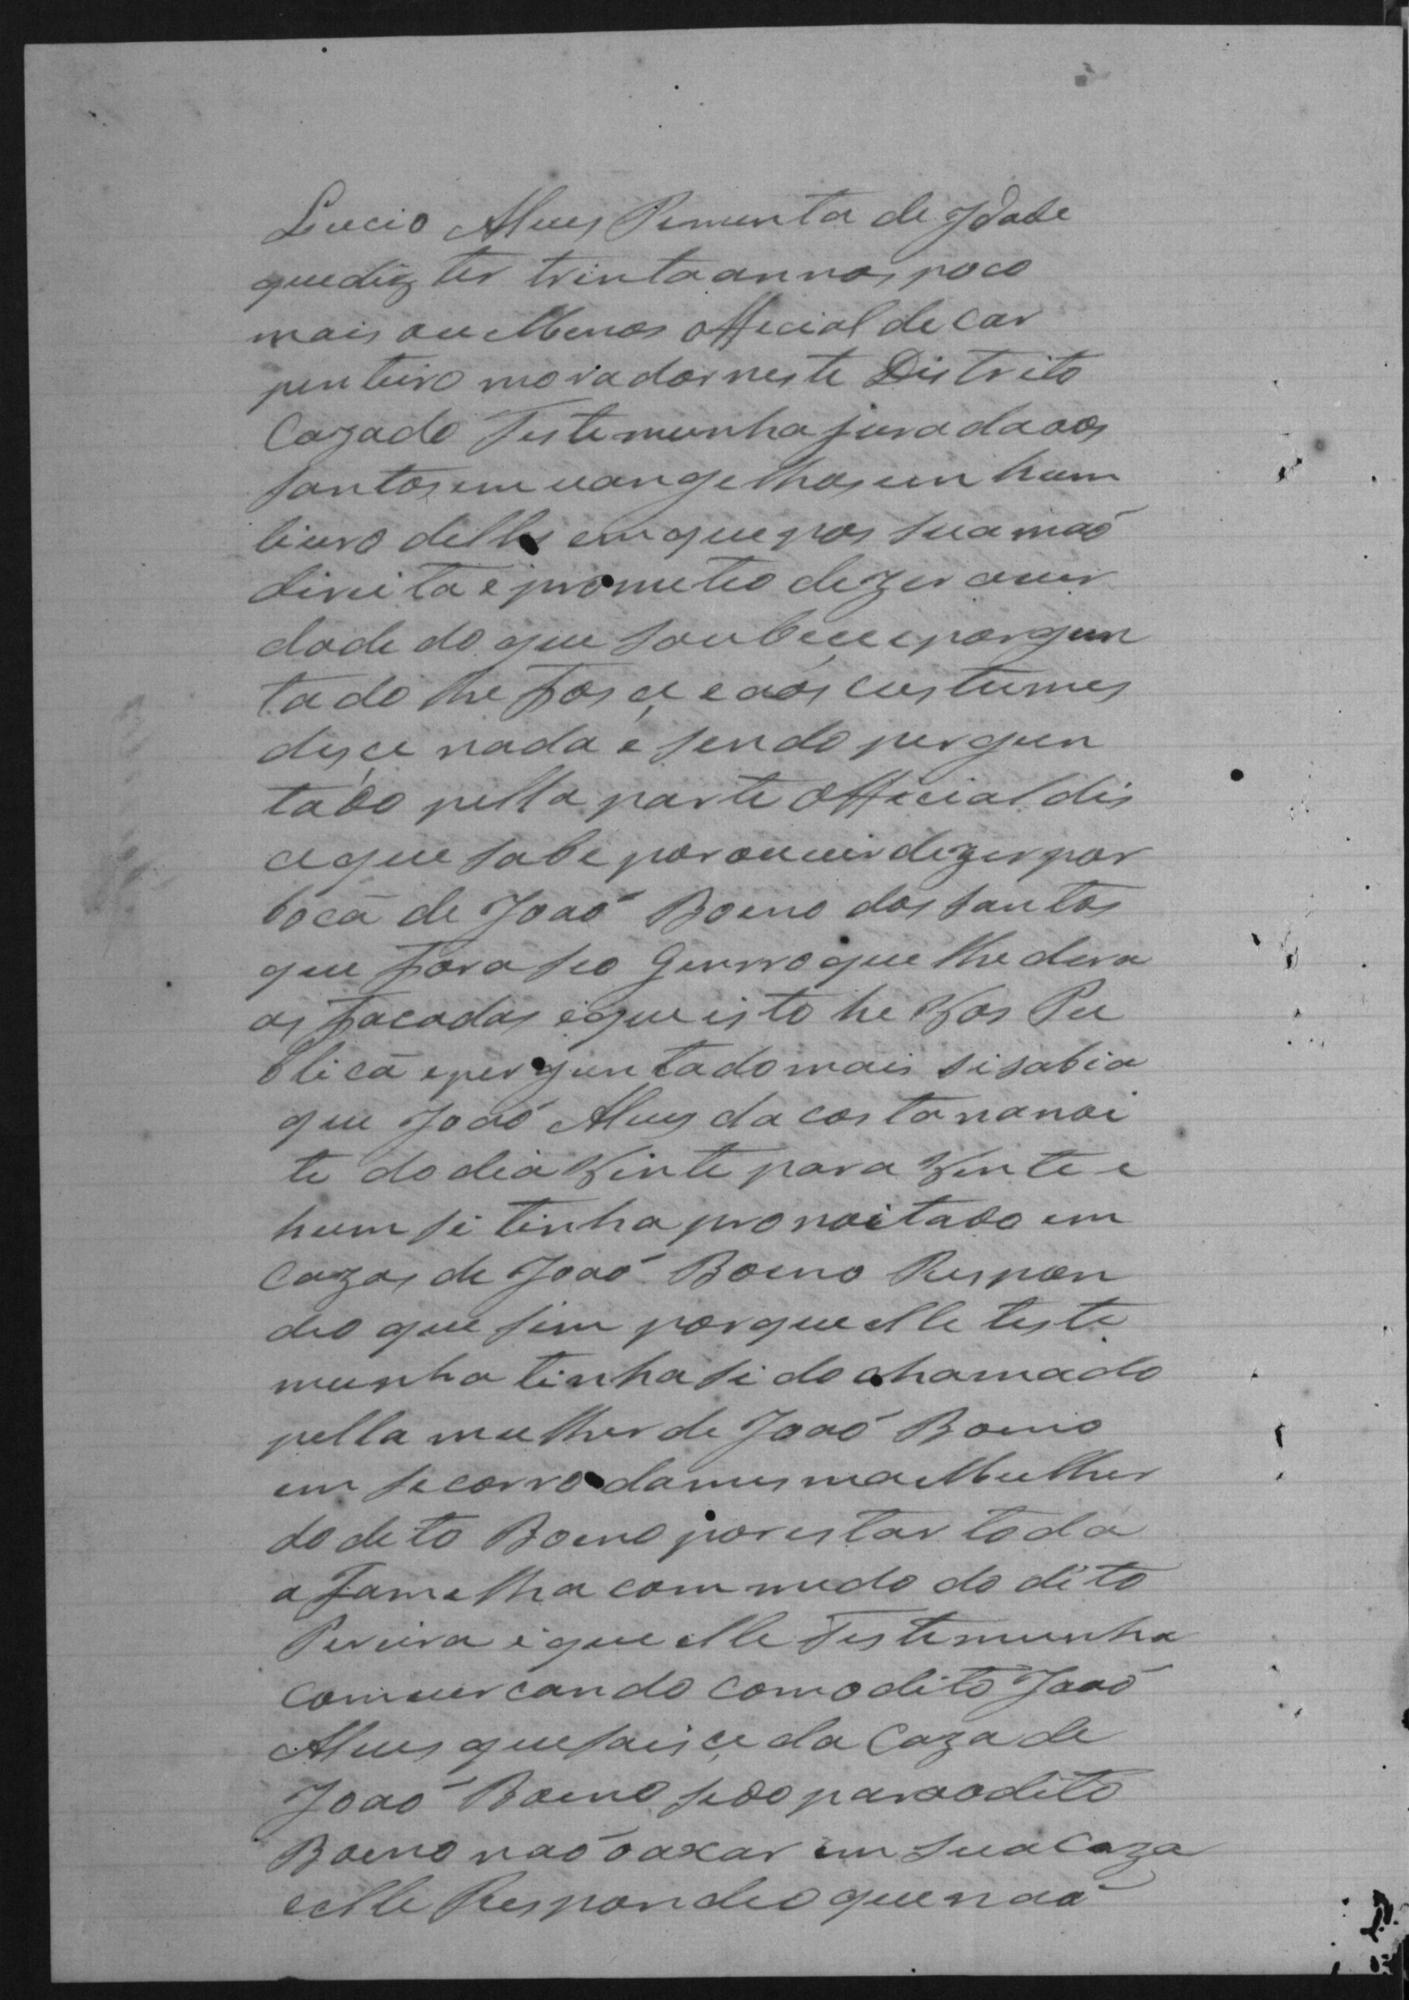 Lucio Alves Pimenta de Idade
que diz ter trinta annos poco
mais ou Menos official de car
penteiro morador neste Distrito
Cazado Testemunha jurada aos
santos em uangelhos em hum
liuro delles em que pos sua maõ
direita e prometeo dezer auer
dade do que soubece e porgun
tado lhe fosce e aos custumes
disce nada e sendo pergun
tado pella parte official dis
ce que sabe por ouuir dezer por
boca de Joaõ Boeno dos santos
que fora seo Genrro que lhe dera
as facadas e que isto he Vos Pu
blica e perguntado mais si sabia
que Joaõ Alves da costa na noi
te do dia Vinte para Vinte e
hum si tinha pronoitado em
Cazas de Joaõ Boeno Respon
deo que sim porque elle teste
munha tinha sido chamado
pella mulher de Joaõ Boeno
em secorro da mesma Mulher
do dito Boeno por estar toda
a Famelha com medo do dito
Pereira e que elle Testemunha
comuercando com o dito Joaõ
Alves que saisce da Caza de
Joaõ Boeno sedo para o dito
Boeno naõ o axar em sua Caza
e elle Respondeo que naõ